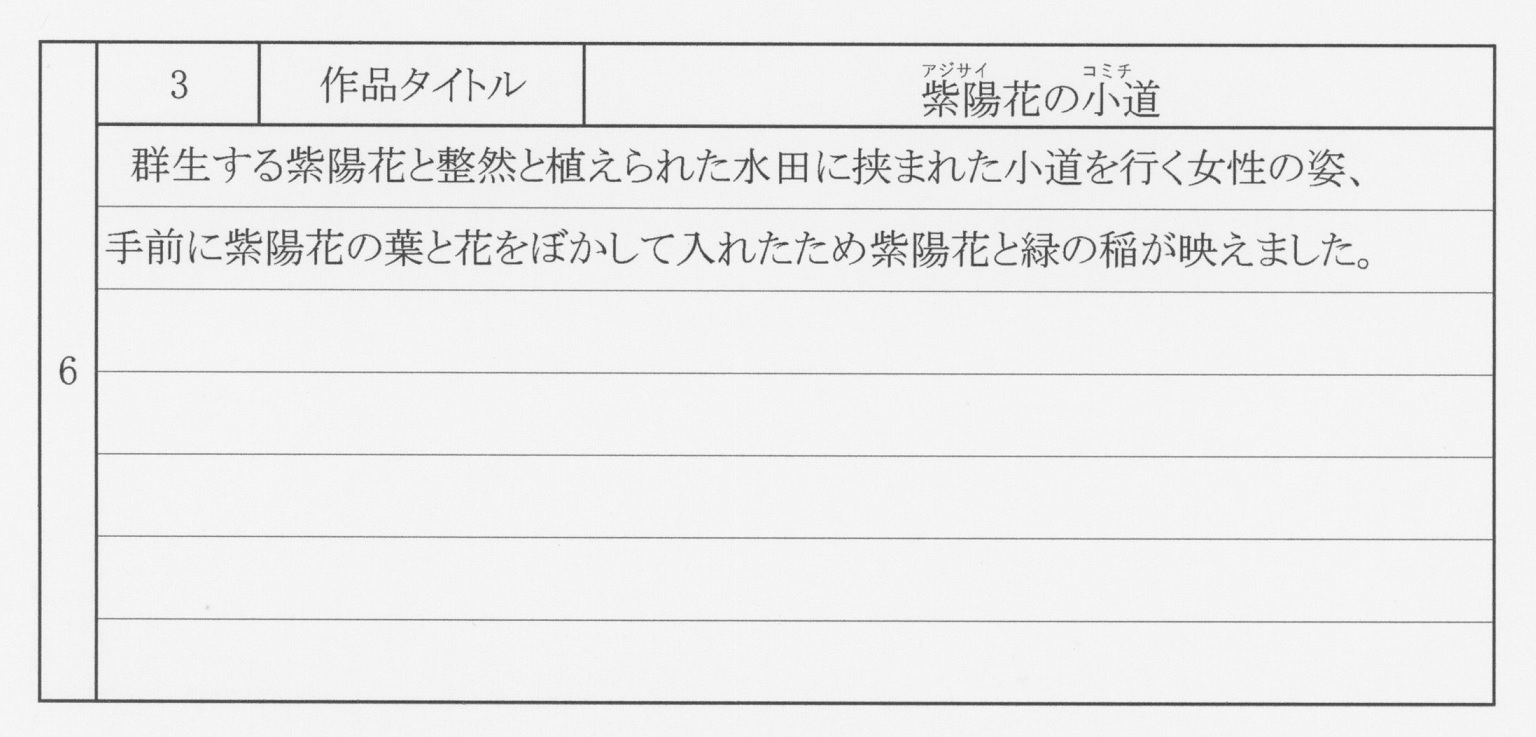 3 作品タイトル 紫陽花の小道
アジサイ コミチ
群生する紫陽花と整然と植えられた水田に挟まれた小道を行く女性の姿、
手前に紫陽花の葉と花をぼかして入れたため紫陽花と緑の稲が映えました。
6